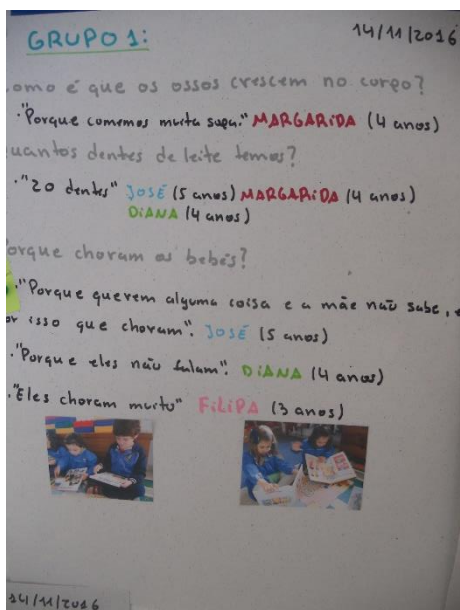 GRUPO 1:
14/11/2016
omo é que os ossos crescem no corpo?
."Porque comemos muita sopa." MARGARIDA (4 anos)
uantos dentes de leite temos?
."20 dentes" JOSÉ (5 anos) MARGARIDA (4 anos)
DIANA (4 anos)
orque choram os bebés?
."Porque querem alguma coisa e a mãe não sabe, é
or isso que choram". JOSÉ (5 anos)
."Porque eles não falam". DIANA (4 anos)
."Eles choram muito" FILIPA (3 anos)
14/11/2016